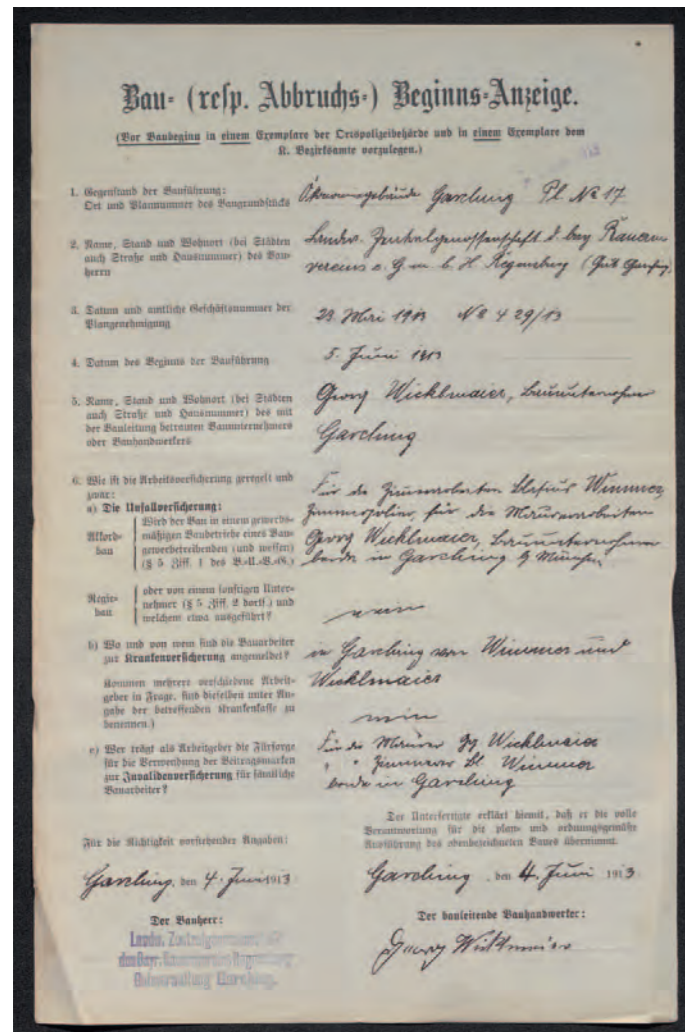 Bau- (resp. Abbruchs-) Beginns-Anzeige.
(Vor Baubeginn in einem Exemplare der Ortspolizeibehörde und in einem Exemplare dem
K. Bezirksamte vorzulegen.)
1. Gegenstand der Bauführung:
Ort und Plannummer des Baugrundstücks
Ökonomiegebäude Garching Pl. No 17
2. Name, Stand und Wohnort (bei Städten
auch Straße und Hausnummer) des Bau-
herrn
Landw. Zentralgenossenschaft d. bay. Bauern
vereins e. G. m. b. H. Regensburg (Gut Garching)
3. Datum und amtliche Geschäftsnummer der
Plangenehmigung
29. Mai 1913 No 429/13
4. Datum des Beginns der Bauführung
5. Juni 1913
5. Name, Stand und Wohnort (bei Städten
auch Straße und Hausnummer) des mit
der Bauleitung betrauten Bauunternehmers
oder Bauhandwerkers
Georg Wicklmaier, Bauunternehmer
Garching
6. Wie ist die Arbeitsversicherung geregelt und
zwar:
a) Die Unfallversicherung:
Akkord-
bau
Wird der Bau in einem gewerbs-
mäßigen Baubetriebe eines Bau-
gewerbetreibenden (und wessen)
(§ 5 Ziff. 1 des B.-U.-V.-G.)
Für die Zimmerarbeiten Blasius Wimmer,
Zimmerpolier, für die Maurerarbeiten
Georg Wicklmaier, Bauunternehmer
beide in Garching b/ München.
Regie-
bau
oder von einem sonstigen Unter-
nehmer (§ 5 Ziff. 2 dortf.) und
welchem etwa ausgeführt?
nein
b) Wo und von wem sind die Bauarbeiter
zur Krankenversicherung angemeldet?
in Garching von Wimmer und
Wicklmaier
Kommen mehrere verschiedene Arbeit-
geber in Frage, sind dieselben unter An-
gabe der betreffenden Krankenkasse zu
benennen.)
nein
c) Wer trägt als Arbeitgeber die Fürsorge
für die Verwendung der Beitragsmarken
zur Invalidenversicherung für sämtliche
Bauarbeiter?
Für die Maurer Gg Wicklmaier
" " Zimmerer Bl. Wimmer
beide in Garching
Für die Richtigkeit vorstehender Angaben:
Garching, den 4. Juni 1913
Der Bauherr:
Landw. Zentralgenossenschaft
des Bayr. Bauernvereins Regensburg
Gutsverwaltung Garching.
Der Unterfertigte erklärt hiemit, daß er die volle
Verantwortung für die plan- und ordnungsgemäße
Ausführung des obenbezeichneten Baues übernimmt.
Garching, den 4. Juni 1913
Der bauleitende Bauhandwerker:
Georg Wicklmaier